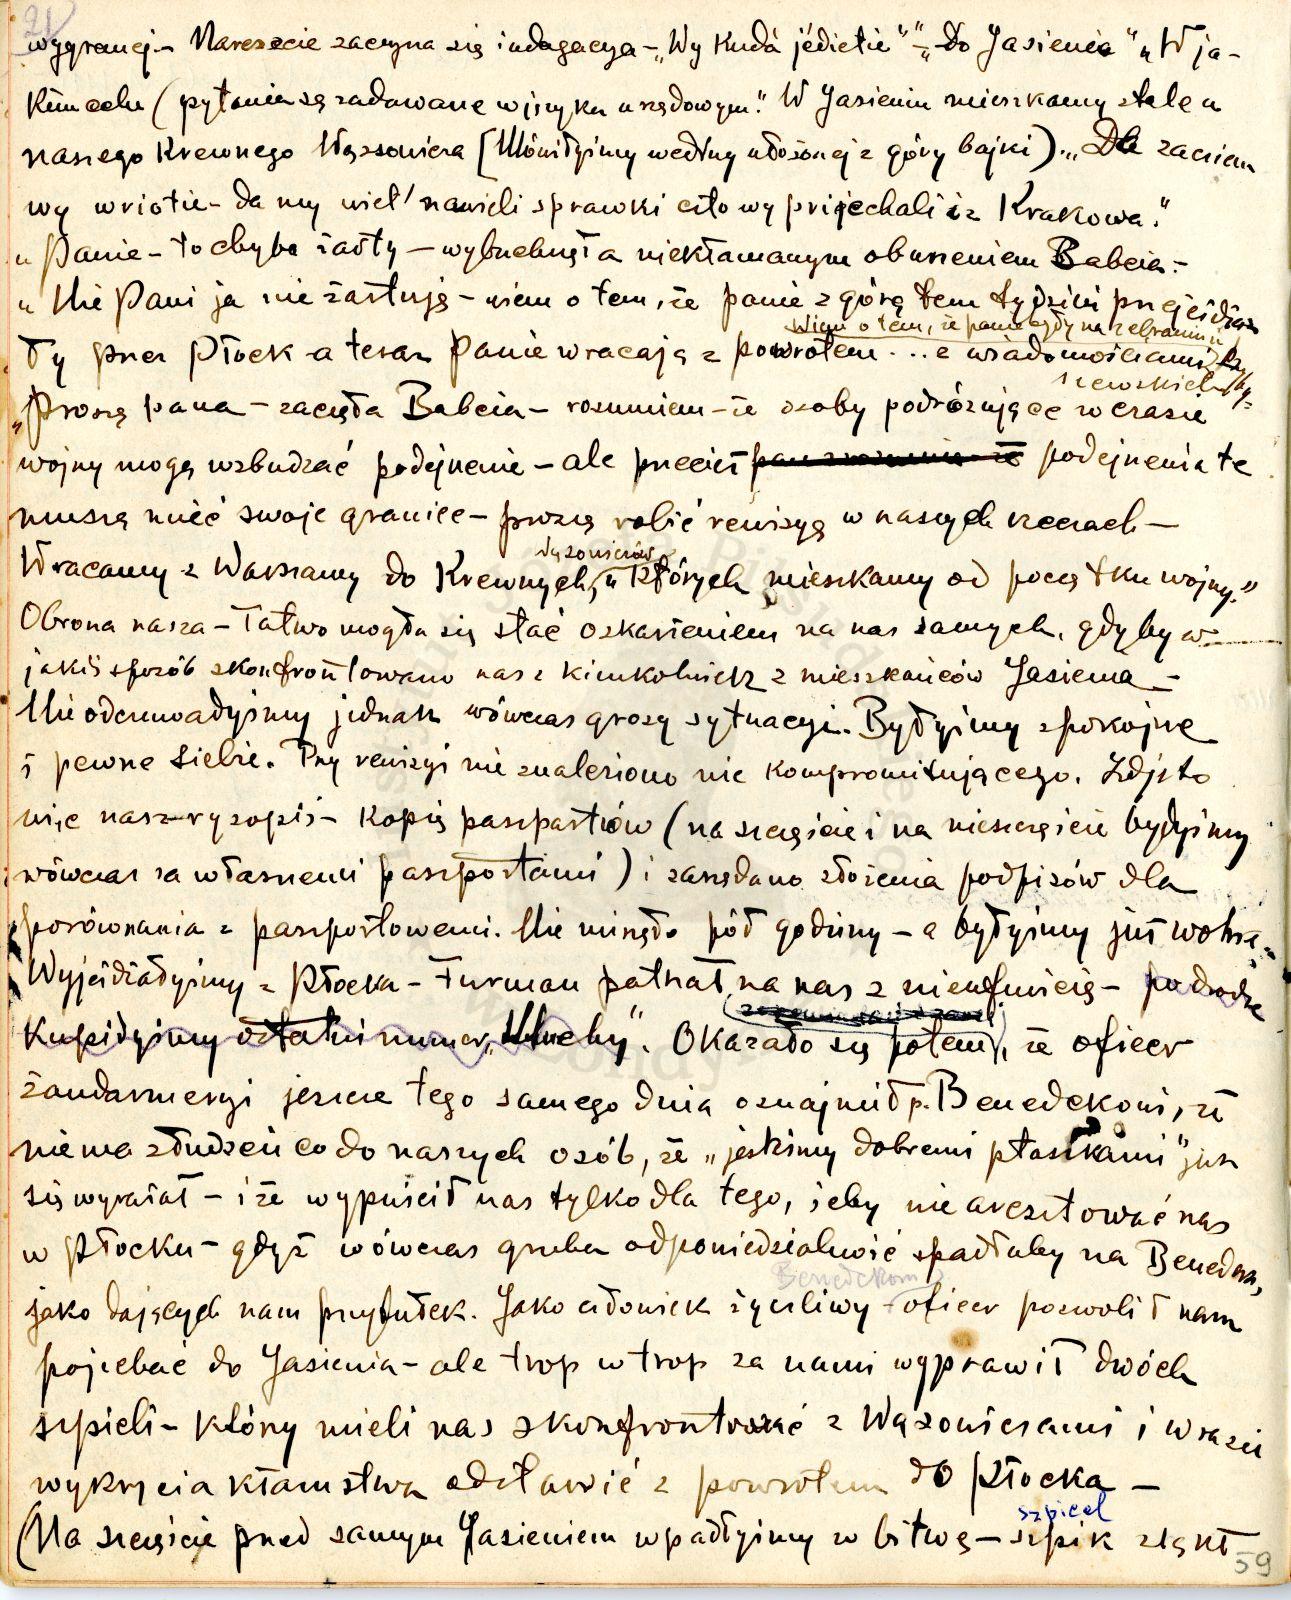 21
wygranej – Nareszcie zaczyna się indagacya – „Wy kudá jédietie” – „do Jasienia” „W ja-
kim celu (pytania są zadawane w języku urzędowym.” W Jasieniu mieszkamy stale u
naszego krewnego Wąsowicza [Mówiłyśmy według ułożonej z góry bajki) – „Dla zaczem
wy wriotie – da my wiet' nawieli sprawki czto wy prijechali iz Krakowa.”
„Panie – to chyba żarty – wybuchnęła niekłamanym oburzeniem Babcia. –
„Nie Pani ja nie żartuję – wiem o tem, że panie z górą tem tydzień przejeżdża-
wiem o tem, że panie były na zebraniu i
ły przez Płock – a teraz Panie wracają z powrotem ... z wiadomościami
„Proszę pana – zaczęła Babcia – rozumiem – że osoby podróżujące w czasie
wojny mogą wzbudzać podejrzenie – ale przecież podejrzenia te
muszą mieć swoje granice – proszę robić rewizyą w naszych rzeczach –
Wąsowiczów
Wracamy z Warszawy do Krewnych, u których mieszkamy od początku wojny.”
Obrona nasza – łatwo mogła się stać oskarżeniem na nas samych, gdyby w
jakiś sposób skonfrontowano nas z kimkolwiek z mieszkańców Jasienia –
Nie odczuwałyśmy jednak wówczas grozy sytuacyi. Byłyśmy spokojne
i pewne siebie. Przy rewizyi nie znaleziono nic kompromitującego. Zdjęto
więc nasz rysopis – kopię paszportów (na szczęście i na nieszczęście byłyśmy
wówczas za własnemi paszportami) i zażądano złożenia podpisów dla
porównania z paszportowemi. Nie minęło pół godziny – a byłyśmy już wolne –
Wyjeżdżałyśmy z Płocka – furman patrzał na nas z nieufnością – po drodze
kupiłyśmy ostatni numer „Muchy”. Okazało się potem, że oficer
żandarmeryi jeszcze tego samego dnia oznajmił p. Benedekowi, że
niema złudzeń co do naszych osób, że „jesteśmy dobremi ptaszkami” jak
się wyraził – i że wypuścił nas tylko dla tego, żeby nie aresztować nas
w Płocku – gdyż wówczas gruba odpowiedzialność spadłaby na Benedka,
Benedekom
jako dających nam przytułek. Jako człowiek życzliwy – oficer pozwolił nam
pojechać do Jasienia – ale trop w trop za nami wyprawił dwóch
szpicli – który mieli nas skonfrontować z Wąsowiczami i w razie
wykrycia kłamstwa odstawić z powrotem do Płocka –
szpicel
(Na szczęście przed samym Jasieniem wpadłyśmy w bitwę – szpik zląkł
59